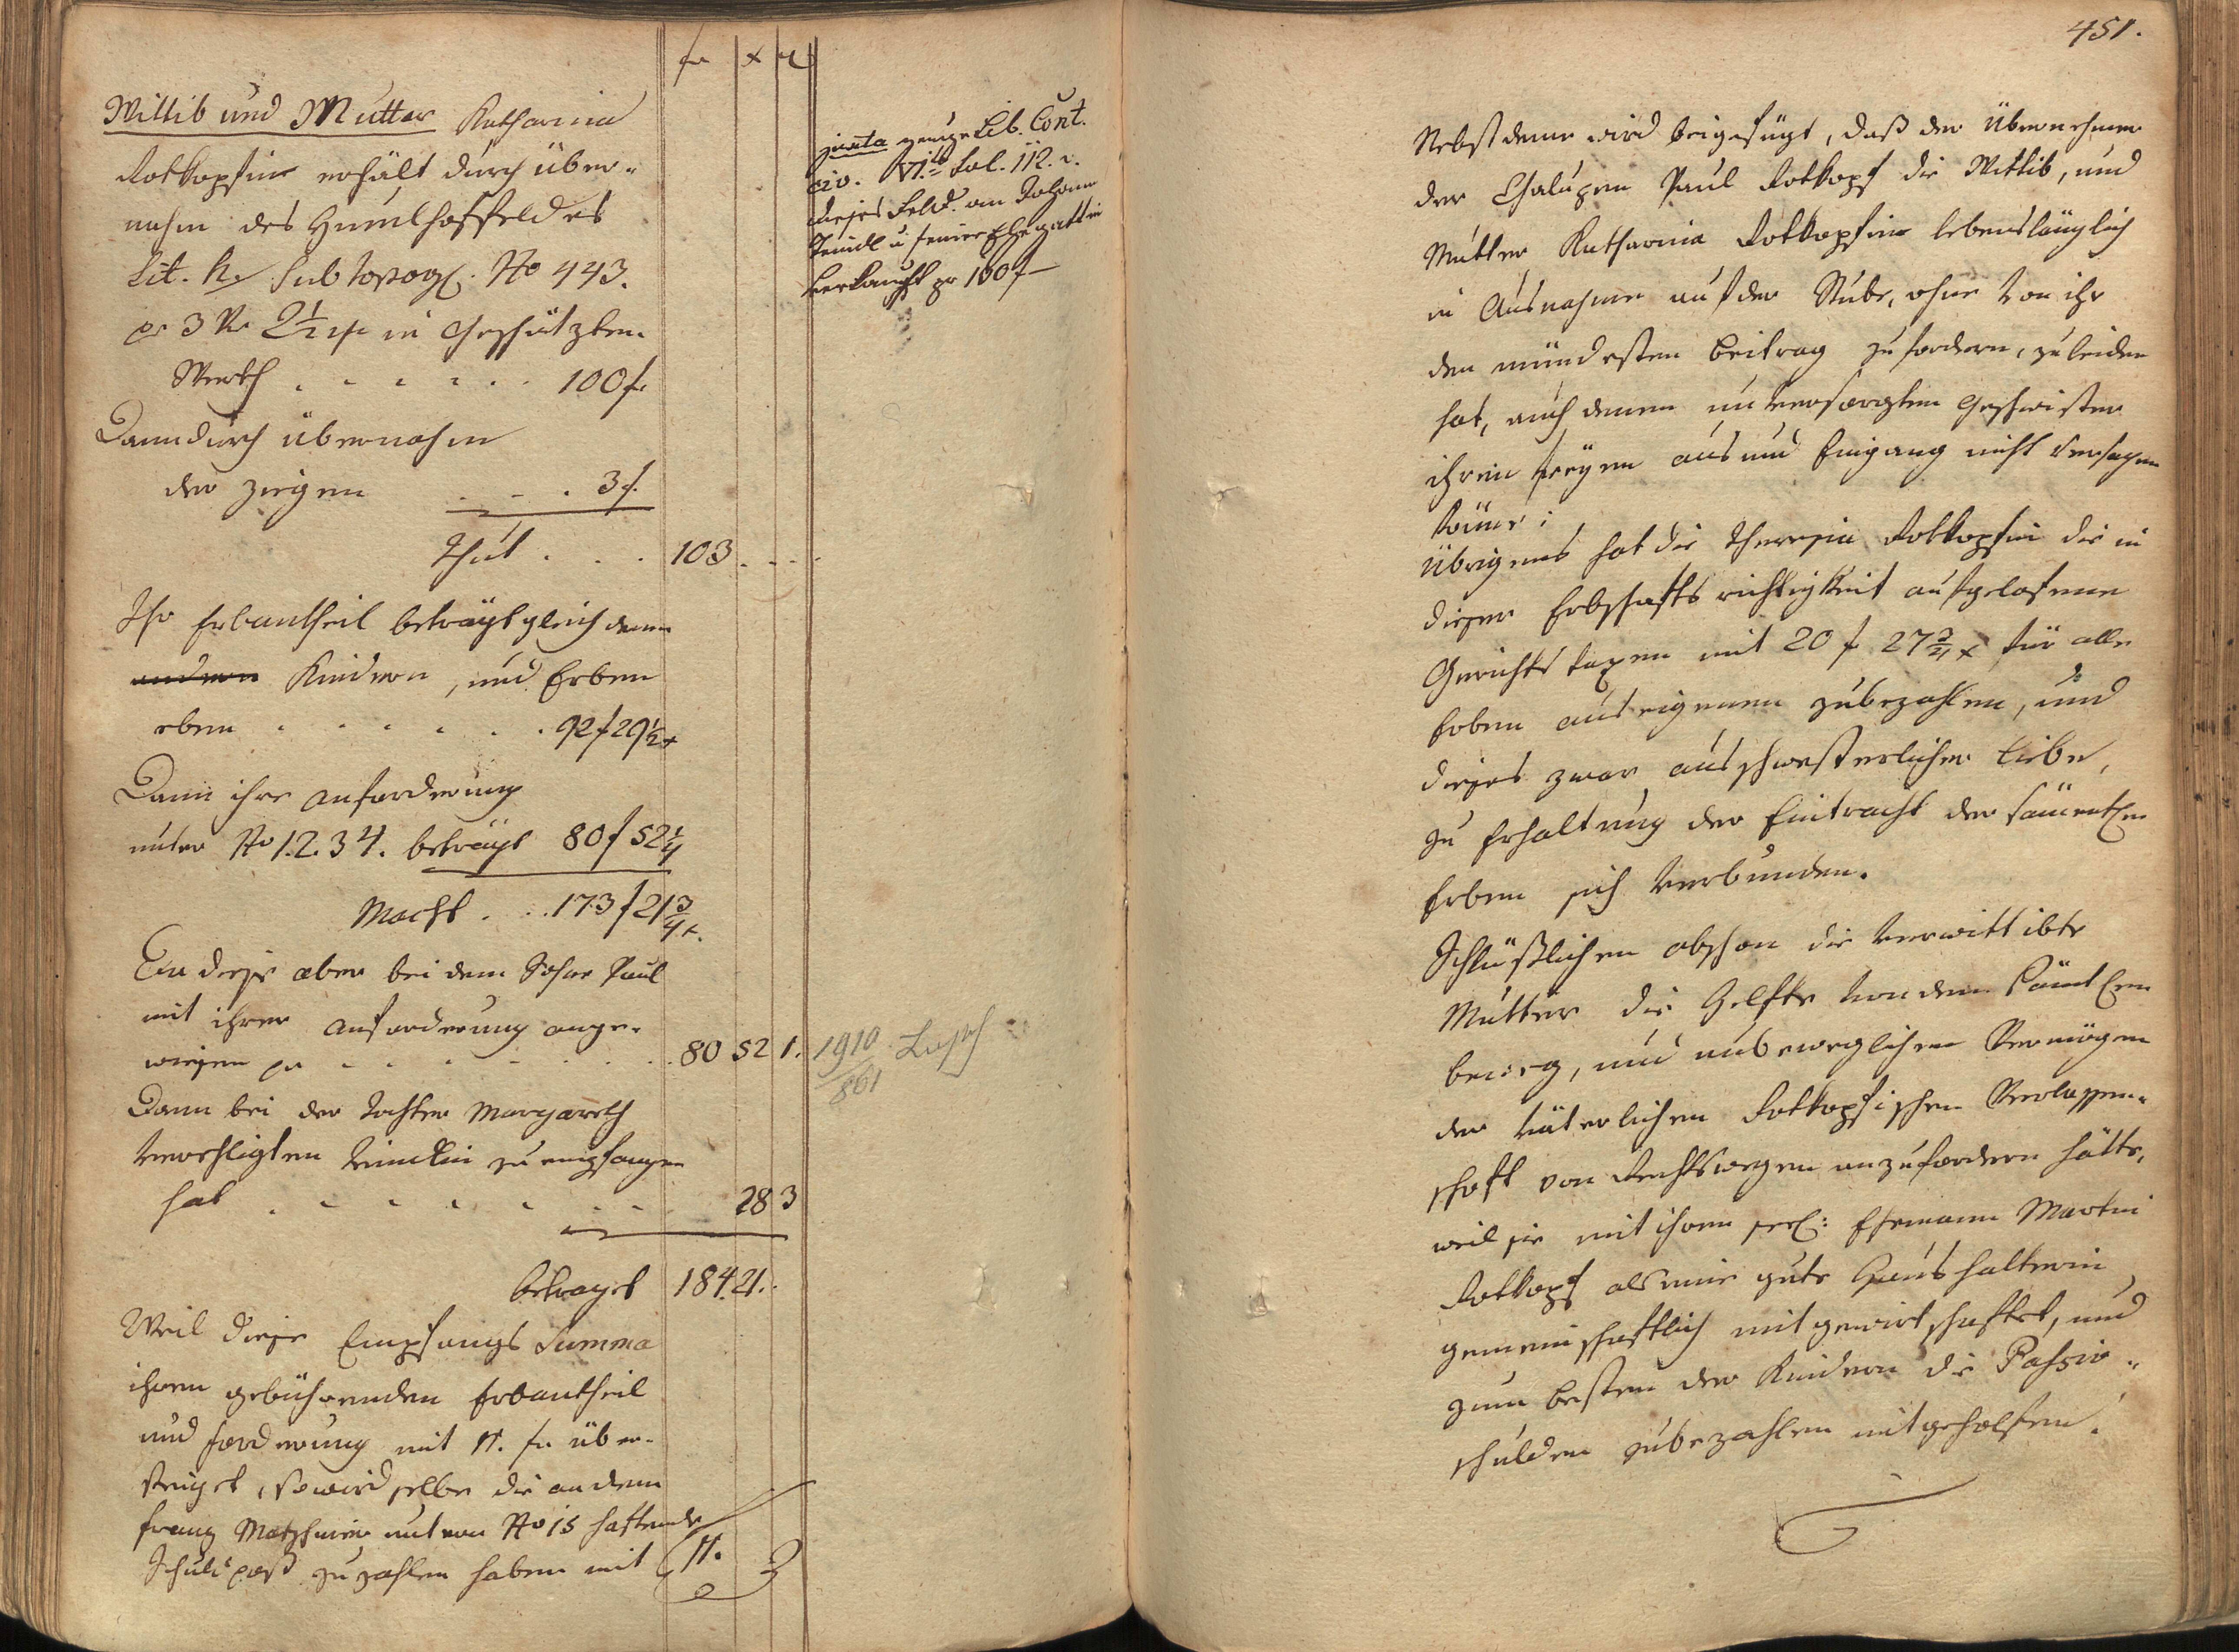 fr x ₰
Wittib und Mutter Katharina
Rotkopfin erhält durch Über-
nahm des Hundhoffeldes
Lit. h. sub topog. No 443.
pr 3 2½ in Geschätzten
Werth . . . . . . 100 f.
Dann durch Übernahm
der Ziegen . . . 3 f.
Thut . . . 103. . .
Ihr Erbantheil beträgt gleich denen
andern Kindern, und Erben
eben . . . . . . 92 f 29½ x
Dann ihre Anforderung
unter No 1.2.3 4. beträgt 80 f 52¼
Macht . . . 173 f 21¾ x.
Da diese aber bei dem Sohne Paul
mit ihrer Anforderung ange-
wiesen pr . . . . . . 80 52 1.
Dann bei der Tochter Margareth
verehligten zu empfangen
hat . . . . . . . 28 3
Betraget 184. 21. .
Weil diese Empfangs Summa
ihren gebührenden Erbantheil
und Forderung mit 11. fr über-
steiget, so wird selbe die an dem
Franz unter No 15 haftende
Schuldpost zu zahlen haben mit 11.
juxta Lib. Cont.
civ. VI.to Fol. 112. v.
dieses Feld. an Johann
Teindl u seiner Ehegattin
Verkauft pr 100 f
1910
861
451.
Nebst deme wird beigefügt, daß der Übernehmer
der Chalupen Paul Rotkopf die Wittib, und
Mutter Katharina Rotkopfin lebenslänglich
in Ausnahme auf der Stube, ohne von ihr
den mündesten Beitrag zu fordern, zu leiden
hat, auch denen unversorgten Geschwistern
ihren freÿen aus und Eingang nicht versagen
könne;
Übrigens hat die Theresia Rotkopfin die in
dieser Erbschafts richtigkeit aufgelofene
Gerichts taxen mit 20 f 27¾ x für alle
Erben aus eigenem zubezahlen, und
dieses zwar aus schwesterlicher Liebe,
zu Erhaltung der Eintracht der sämentlen
Erben sich verbunden.
Schlüßlichen obschon die verwittibte
Mutter die Helfte von dem sämtlen
beweg, und unbeweglichen Vermögen
der väterlichen Rotkopfischen Verlassen-
schaft von Rechtswegen anzufordern hätte,
weil sie mit ihrem seel: Ehemann Martin
Rotkopf als eine gute Haushalterin
gemeinschaftlich mitgewirtschaftet, und
zum besten der Kindern die Passiv-
schulden zubezahlen mitgeholfen.